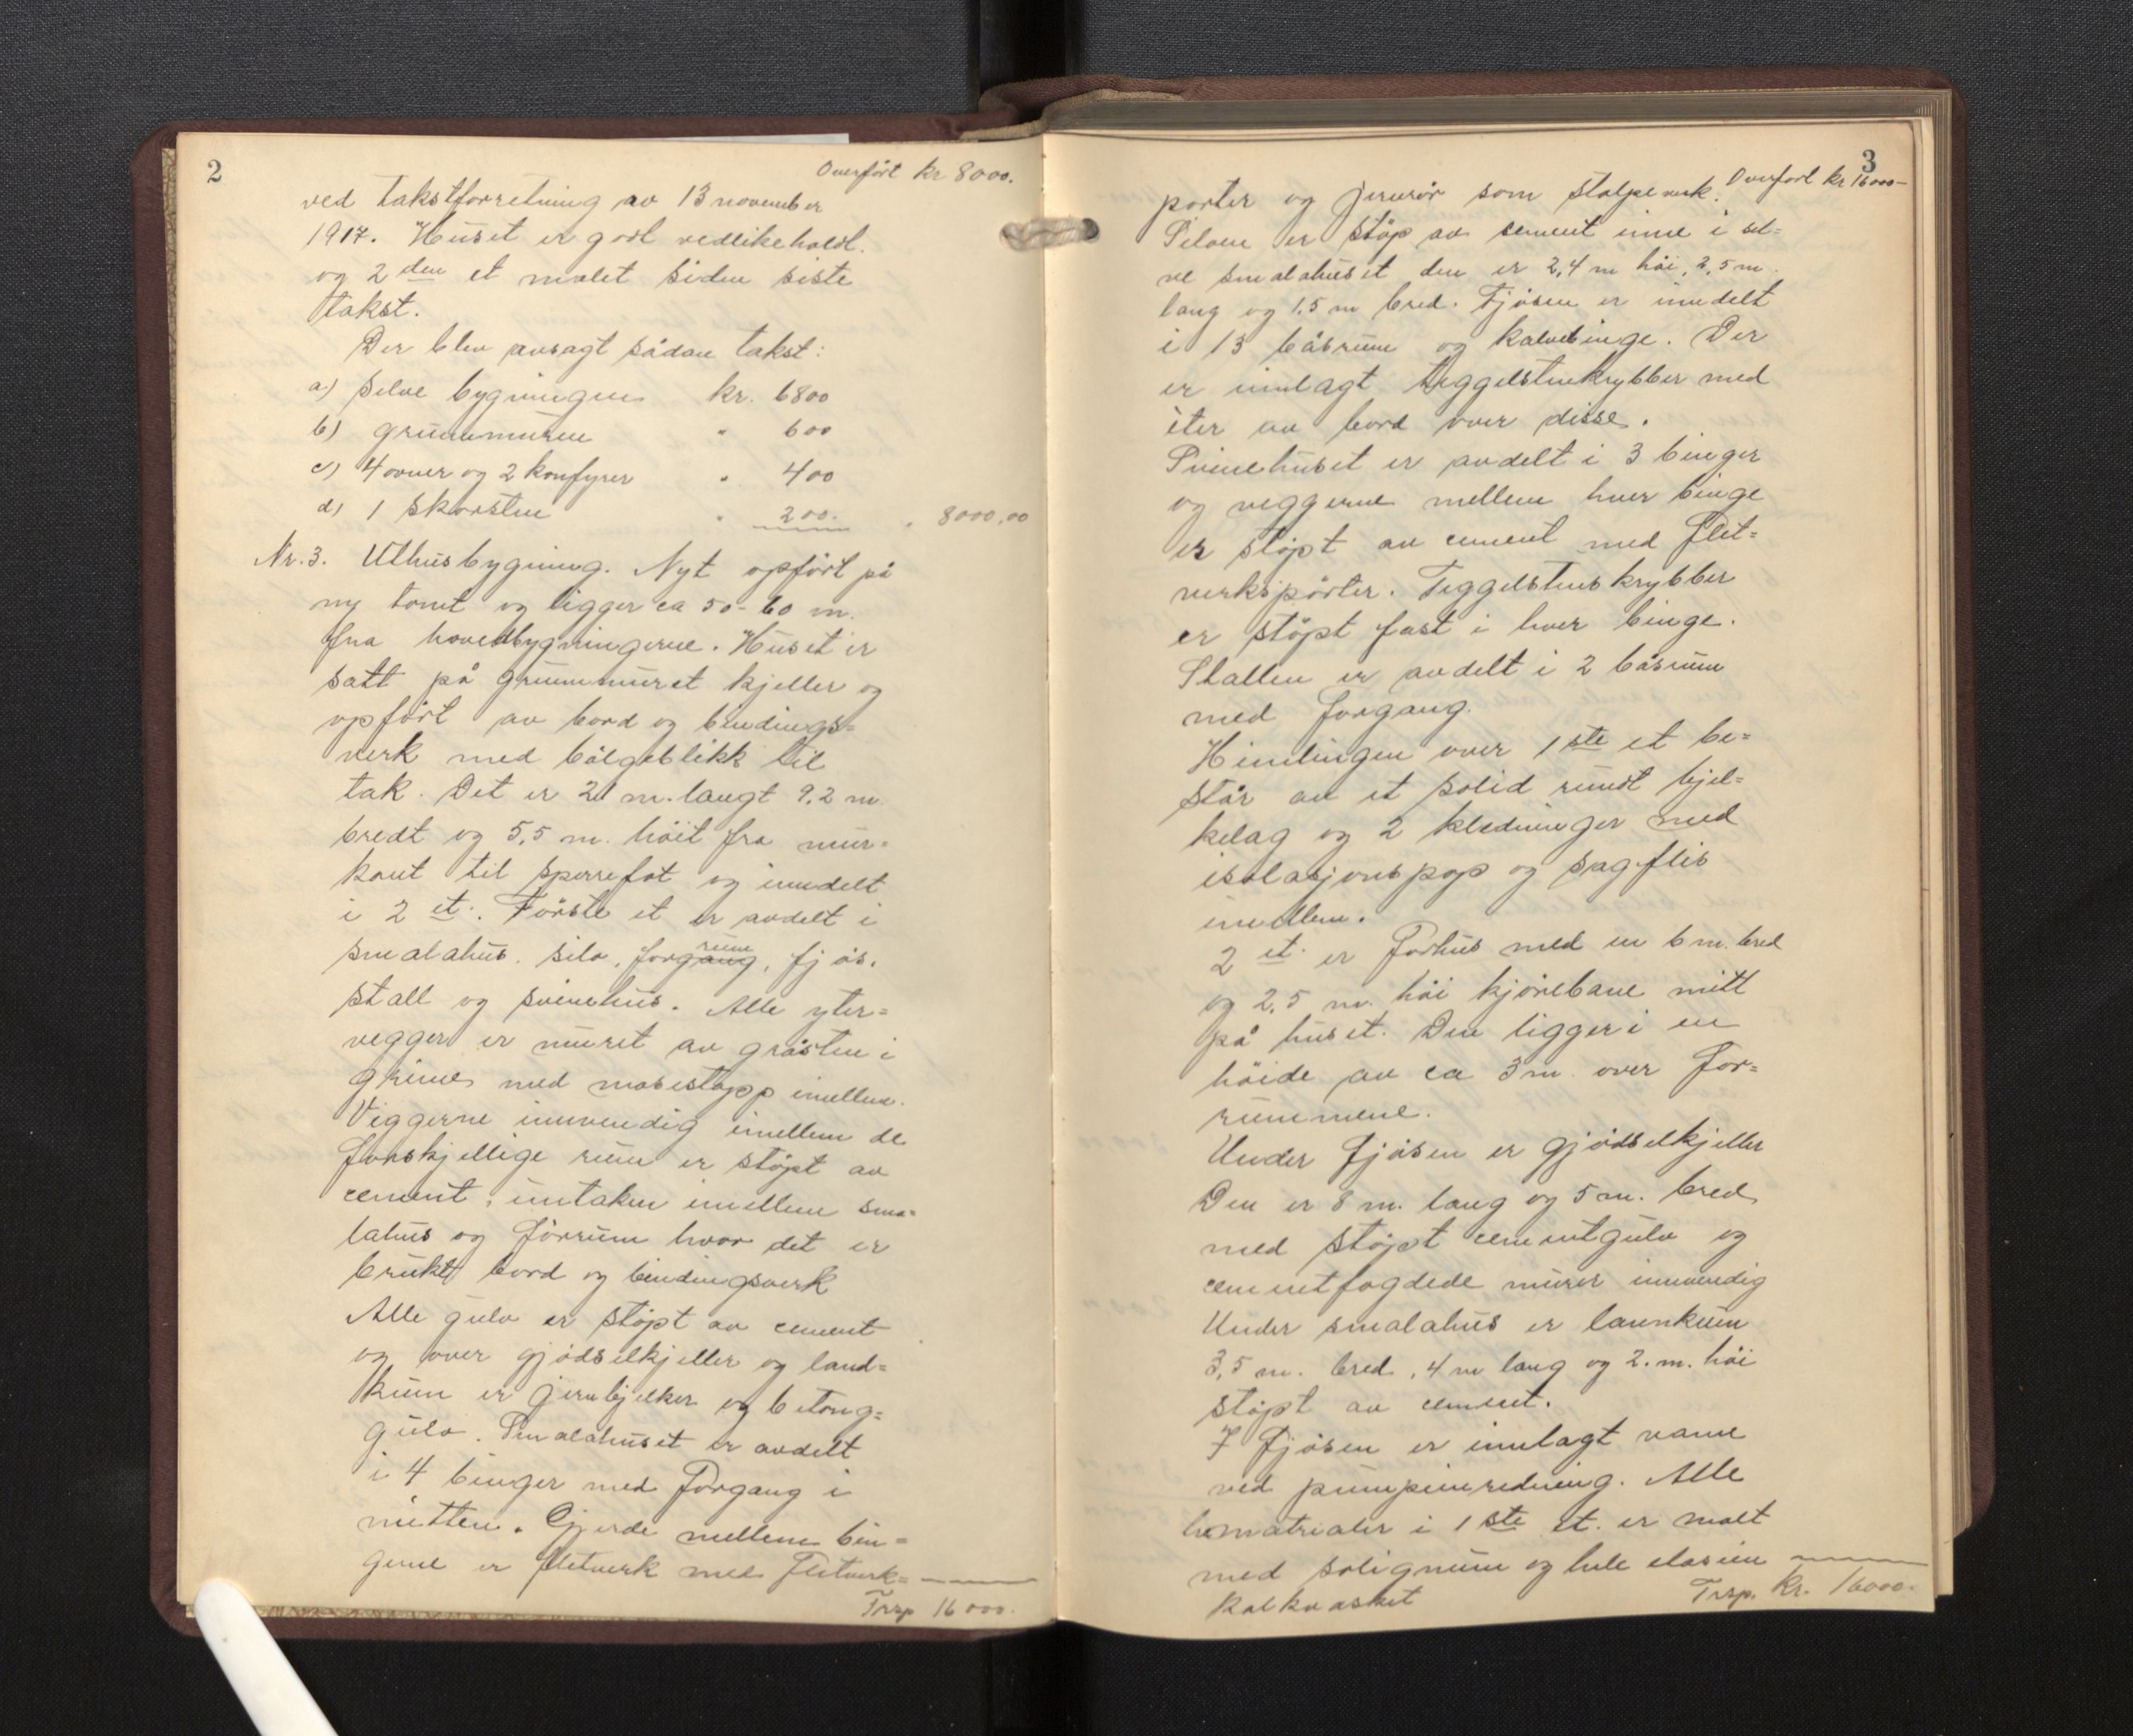 2
Overført kr 8000.
ved takstforretning av 13 november
1917. Huset er godt vedlikeholdt.
og 2den et malet siden siste
takst.
Der blev avsagt sådan takst:
a) Selve bygningen kr. 6800
b) grunnmuren " 600
c) 4 ovner og 2 komfyrer " 400
d) 1 skorsten " 200. " 8000,00
Nr. 3. Uthusbygning. Nyt opført på
ny tomt og ligger ca 50-60 m.
fra hovedbygningerne. Huset er
satt på grunnmuret kjeller og
opført av bord og bindings=
verk med bølgeblikk til
tak. Det er 21 m. langt 9,2 m.
bredt og 5,5 m. høit fra mur=
kant til sperrefot og inndelt
i 2 et. Første et er avdelt i
smalahus. silo, forgang rum, fjøs.
stall og svinehus. Alle yter=
vegger er muret av gråsten i
grime med mosestopp imellem.
Veggerne innvendig imellem de
forskjellige rum er støpt av
cement, untaken imellem sma=
lahus og fôrrum hvor det er
brukt bord og bindingsverk
Alle gulv er støpt av cement
og over gjødselkjeller og land=
kum er jernbjelker og betong=
gulv. Smalahuset er avdelt
i 4 binger med forgang i
mitten. Gjerde mellem bin=
gerne er fletverk med Fletverk=
Trsp 16000.
3
Overført kr 16000-
porter og jernrør som stolpeverk.
Siloen er støp av sement inne i sel=
ve smalahuset den er 2,4 m høi, 2,5 m.
lang og 1,5 m bred. Fjøsen er inndelt
i 13 båsrum og kalvebinge. Der
er innlagt teggelstenkrybber med
eter av bord over disse.
Svinehuset er avdelt i 3 binger
og veggerne mellem hver binge
er støpt av cement med flet=
verksporter. Teggelstenskrybber
er støpt fast i hver binge.
Stallen er avdelt i 2 båsrum
med forgang.
Himlingen over 1ste et be=
står av et solid rundt bjel=
kelag og 2 kledninger med
isolasjonspap og sagflis
imellem.
2 et. er Forhus med en 6 m. bred
og 2,5 m. høi kjørebane mitt
på huset. Den ligger i en
høide av ca 3 m. over for=
rummene.
Under fjøsen er gjødselkjeller
Den er 8 m. lang og 5 m. bred
med støpt cementgulv og
cementfogdede murer innvendig
Under smalahus er lannkum
3,5 m. bred, 4 m lang og 2. m. høi
støpt av cement.
I fjøsen er innlagt vann
ved pumpeinredning. Alle
trematrialer i 1ste et. er malt
med solignum og hele etasjen
kalkvasket
Trsp. kr. 16000.